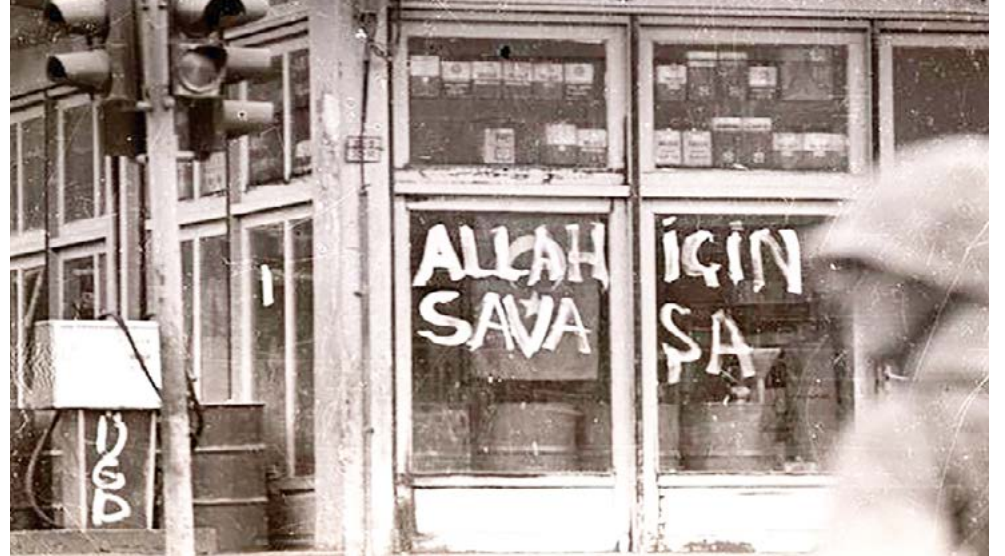 ALLAH İÇİN
SAVA ŞA
ÜGD